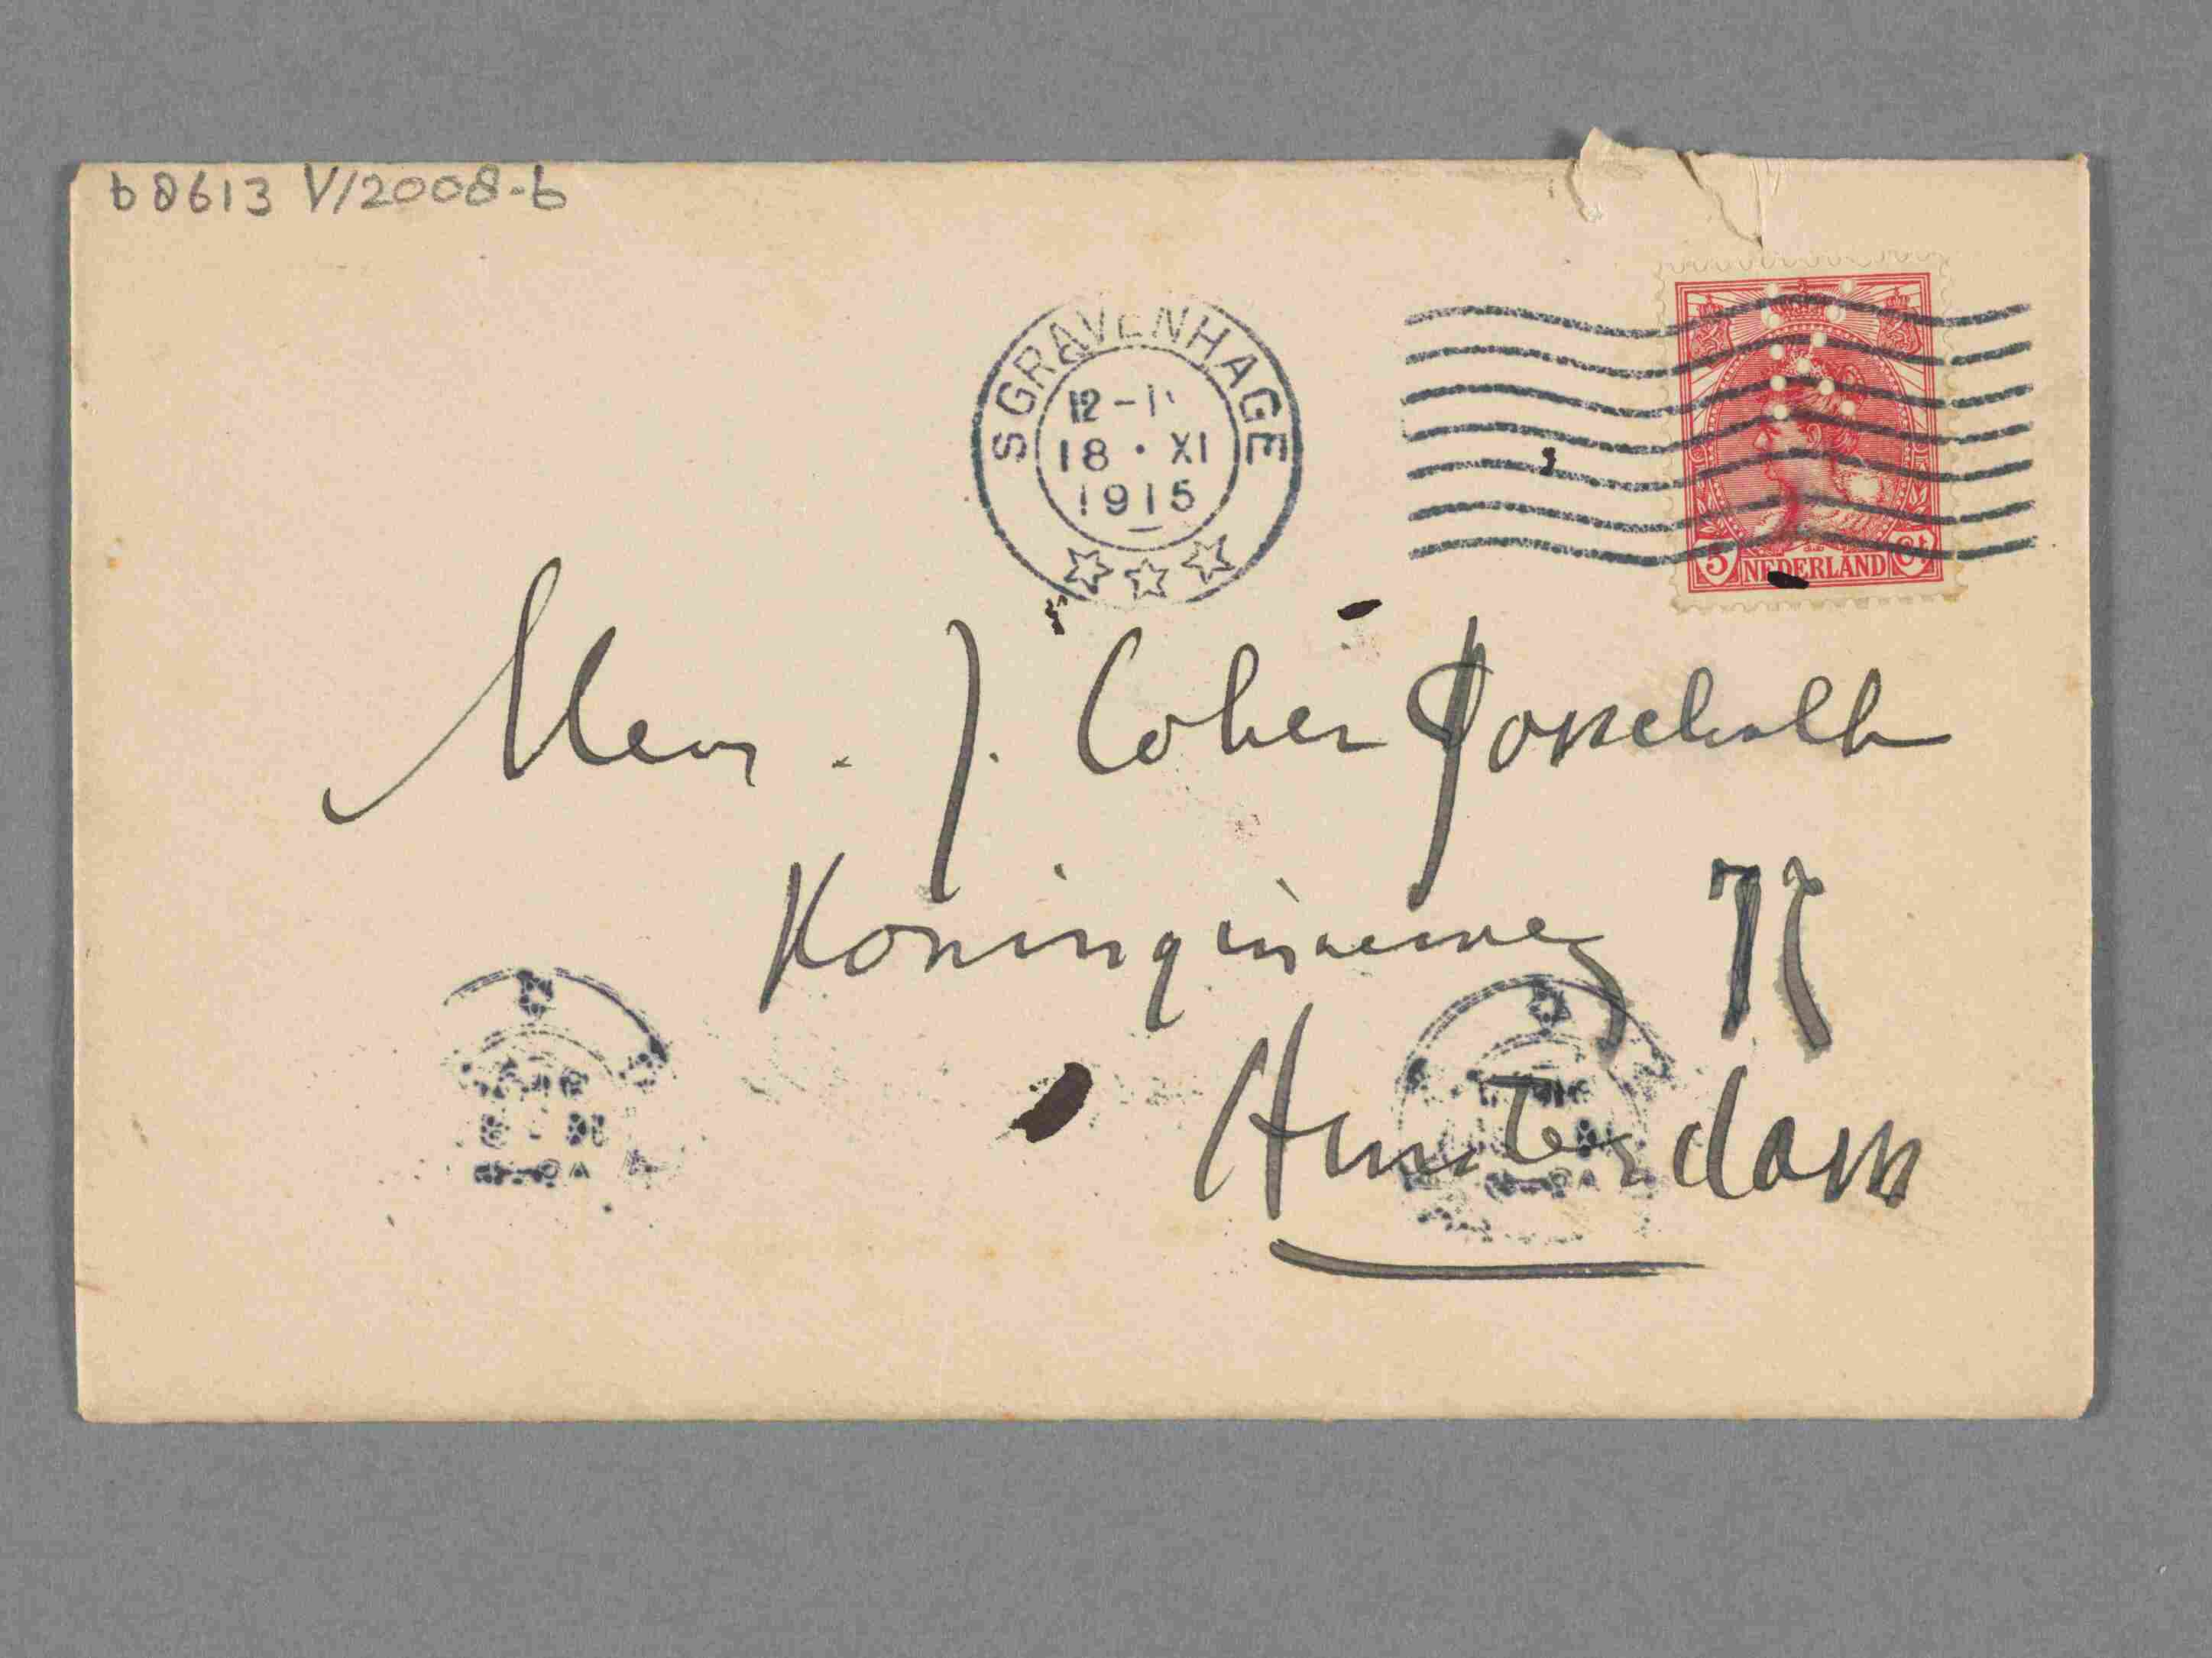 b8613 V/2008-b
S GRAVENHAGE
12-1
18 · XI
1915
5 NEDERLAND Ct
Mevr. J. Cohen Gosschalk
Koninginneweg 77
Amsterdam